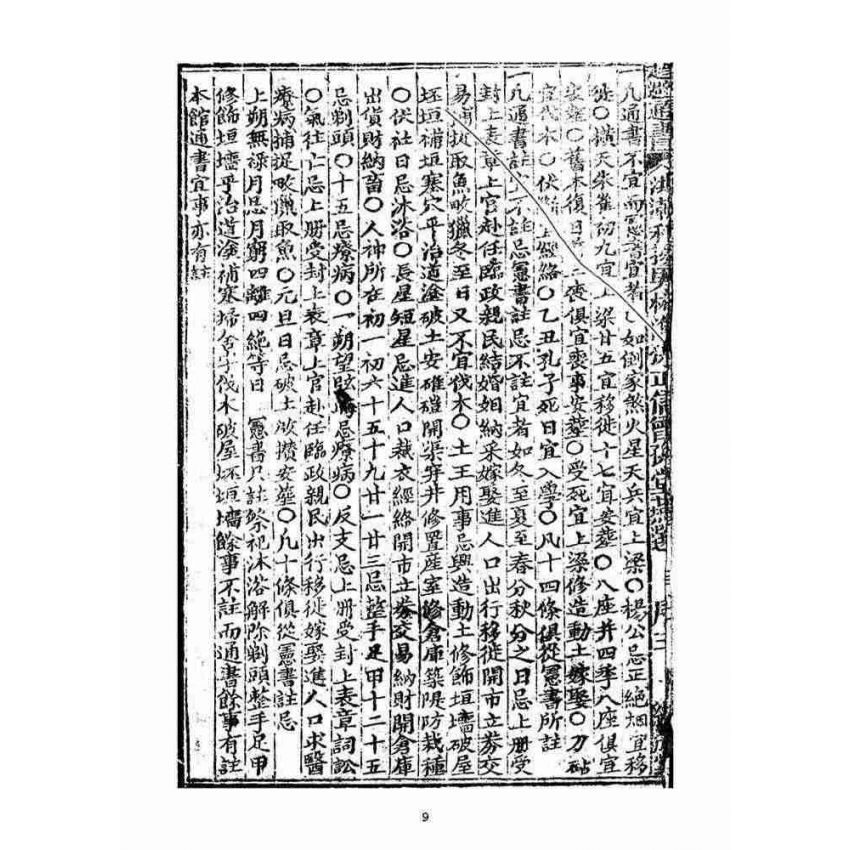 一凡通書不宜而憲書宜者如倒家煞火星天兵宜上梁〇楊公忌正絕烟宜移
徙〇橫天朱雀初九宜上梁廿五宜移徙十七宜安葬〇八座并四季八座俱宜
安葬〇舊本復日喪俱宜喪事安葬〇受死宜上梁修造動土嫁娶〇刀砧
宜伐木〇伏斷上經絡〇乙丑孔子死日宜入學〇凡十四條俱從憲書所註
一凡通書註宜不註忌憲書註忌不註宜者如冬至夏至春分秋分之日忌上册受
封上表章上官赴任臨政親民結婚姻納采嫁娶進人口出行移徙開市立券交
易捕捉取魚畋獵冬至日又不宜伐木〇土王用事忌興造動土修飾垣墻破屋
坯垣補垣塞穴平治道塗破土安碓磑開渠穿井修置產室修倉庫築隄防栽種
〇伏社日忌沐浴〇長星短星忌進人口裁衣經絡開市立券交易納財開倉庫
出貨財納畜〇人神所在初一初六十五十九廿一廿三忌整手足甲十二十五
忌剃頭〇十五忌療病〇一朔望弦晦忌療病〇反支忌上册受封上表章詞訟
〇氣往亡忌上册受封上表章上官赴任臨政親民出行移徙嫁娶進人口求醫
療病捕捉畋獵取魚〇元旦日忌破土啟攢安葬〇凡十條俱從憲書註忌
上朔無祿月忌月窮四離四絕等日 憲書只註祭祀沐浴解除剃頭整手足甲
修飾垣墻平治道塗補塞掃舍宇伐木破屋坏垣墻餘事不註而通書餘事有註
本館通書宜事亦有註
9